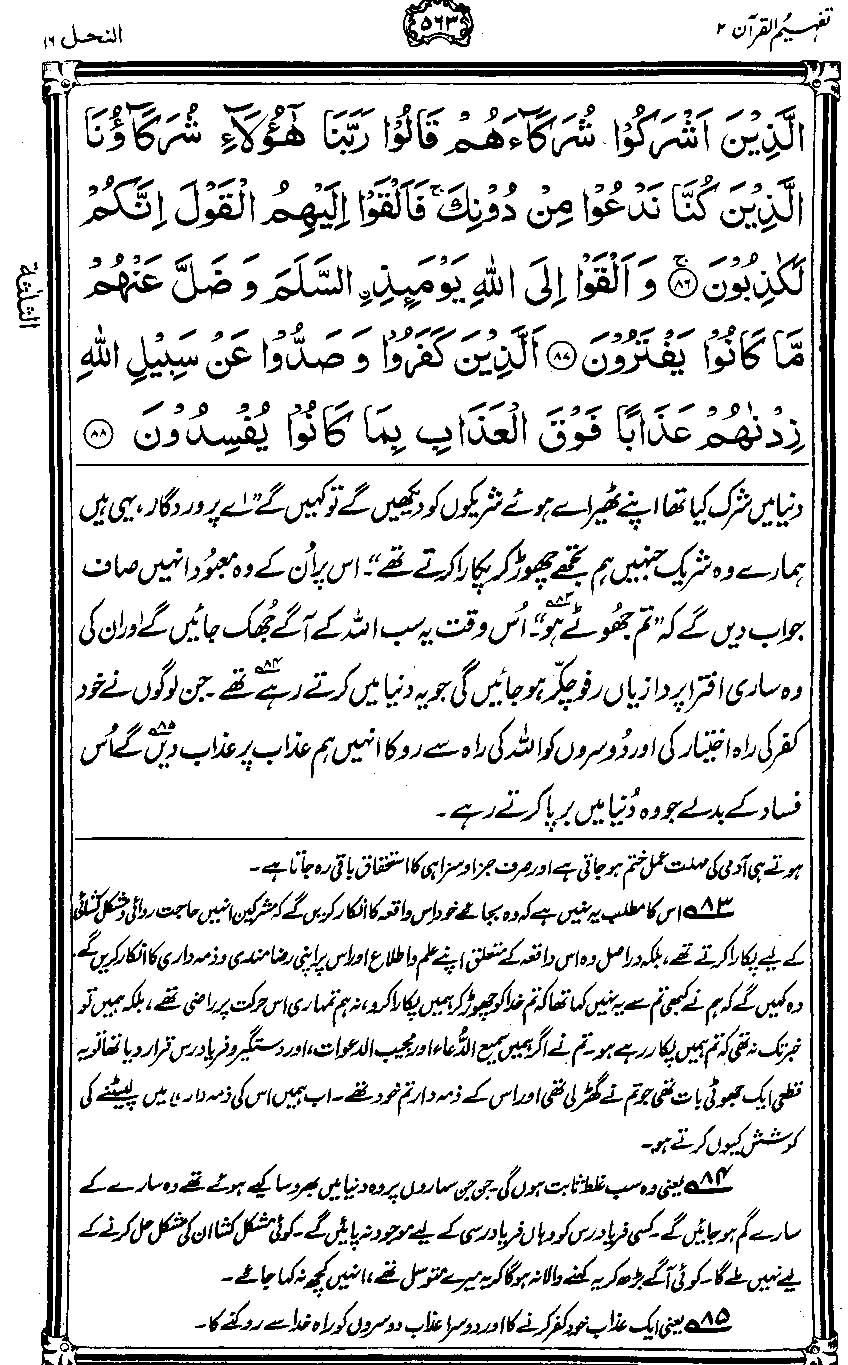 تفہیم القرآن ۲
۵۶۳
النحل ۱۶
الَّذِيْنَ اَشْرَكُوْا شُرَكَآءَهُمْ قَالُوْا رَبَّنَا هٰٓؤُلَآءِ شُرَكَآؤُنَا
الَّذِيْنَ كُنَّا نَدْعُوْا مِنْ دُوْنِكَ ۚ فَاَلْقَوْا اِلَيْهِمُ الْقَوْلَ اِنَّكُمْ
لَكٰذِبُوْنَ ۚ ﴿۸۶﴾ وَ اَلْقَوْا اِلَى اللّٰهِ يَوْمَىِٕذِ ِۨ السَّلَمَ وَ ضَلَّ عَنْهُمْ
مَّا كَانُوْا يَفْتَرُوْنَ ﴿۸۷﴾ اَلَّذِيْنَ كَفَرُوْا وَ صَدُّوْا عَنْ سَبِيْلِ اللّٰهِ
زِدْنٰهُمْ عَذَابًا فَوْقَ الْعَذَابِ بِمَا كَانُوْا يُفْسِدُوْنَ ﴿۸۸﴾
الثلثة
دنیا میں شرک کیا تھا اپنے ٹھیراے ہوئے شریکوں کو دیکھیں گے تو کہیں گے ”اے پروردگار، یہی ہیں
ہمارے وہ شریک جنہیں ہم تجھے چھوڑ کر پکارا کرتے تھے“۔ اس پر اُن کے وہ معبُود انہیں صاف
جواب دیں گے کہ ”تم جھُوٹے ہو“۸۳۔ اُس وقت یہ سب اللہ کے آگے جُھک جائیں گے اور ان کی
وہ ساری افترا پردازیاں رفو چکّر ہو جائیں گی جو یہ دنیا میں کرتے رہے تھے۸۴۔ جن لوگوں نے خود
کفر کی راہ اختیار کی اور دُوسروں کو اللہ کی راہ سے روکا انہیں ہم عذاب پر عذاب دیں گے۸۵ اُس
فساد کے بدلے جو وہ دُنیا میں برپا کرتے رہے۔
ہوتے ہی آدمی کی مہلت عمل ختم ہو جاتی ہے اور صرف جزا و سزا ہی کا استحقاق باقی رہ جاتا ہے۔
۸۳ اس کا مطلب یہ نہیں ہے کہ وہ بجائے خود اس واقعہ کا انکار کریں گے کہ مشرکین انہیں حاجت روائی و مشکل کشائی
کے لیے پکارا کرتے تھے، بلکہ دراصل وہ اس واقعہ کے متعلق اپنے علم و اطلاع اور اس پر اپنی رضامندی و ذمہ داری کا انکار کریں گے۔
وہ کہیں گے کہ ہم نے کبھی تم سے یہ نہیں کہا تھا کہ تم خدا کو چھوڑ کر ہمیں پکارا کرو، نہ ہم تمہاری اس حرکت پر راضی تھے، بلکہ ہمیں تو
خبر تک نہ تھی کہ تم ہمیں پکار رہے ہو۔ تم نے اگر ہمیں سمیع الدُّعاء اور مجیب الدعوات، اور دستگیر و فریادرس قرار دیا تھا تو یہ
قطعی ایک جھوٹی بات تھی جو تم نے گھڑ لی تھی اور اس کے ذمہ دار تم خود تھے۔ اب ہمیں اس کی ذمہ داری میں لپیٹنے کی
کوشش کیوں کرتے ہو۔
۸۴ یعنی وہ سب غلط ثابت ہوں گی۔ جن جن سہاروں پر وہ دنیا میں بھروسا کیے ہوئے تھے وہ سارے کے
سارے گم ہو جائیں گے۔ کسی فریادرس کو وہاں فریادرسی کے لیے موجود نہ پائیں گے۔ کوئی مشکل کشا ان کی مشکل حل کرنے کے
لیے نہیں ملے گا۔ کوئی آگے بڑھ کر یہ کہنے والا نہ ہوگا کہ یہ میرے متوسل تھے، انہیں کچھ نہ کہا جائے۔
۸۵ یعنی ایک عذاب خود کفر کرنے کا اور دوسرا عذاب دوسروں کو راہ خدا سے روکنے کا۔